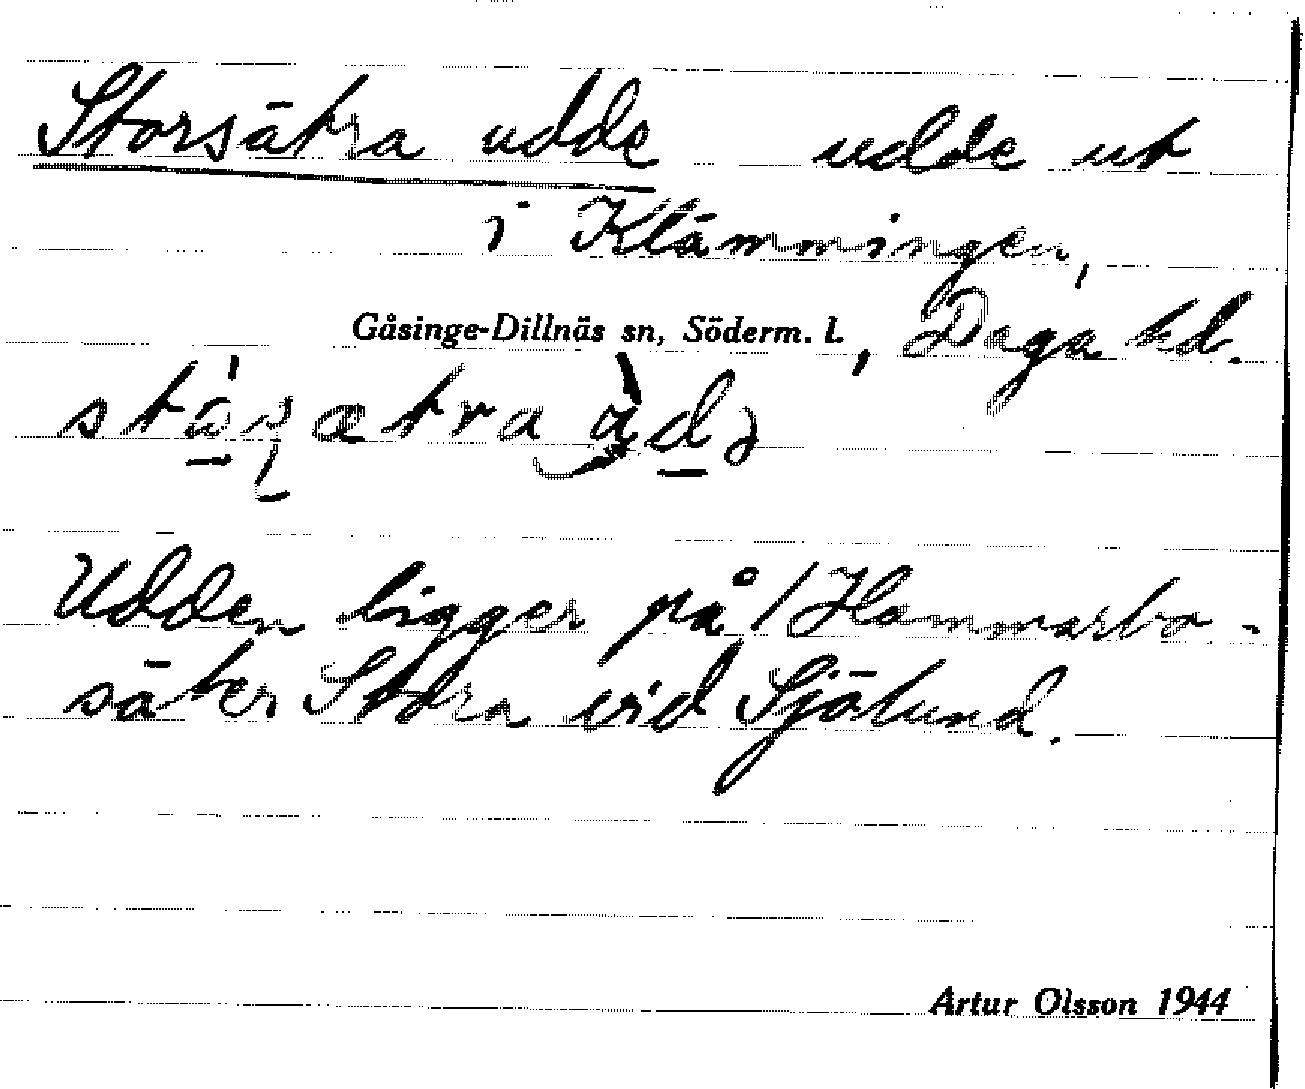 Storsätra udde udde ut
i Klämmingen,
Gåsinge-Dillnäs sn, Söderm. l., Daga hd.
Udden ligger på / Hammarbo-
säter Stora vid Sjölund.
Artur Olsson 1944